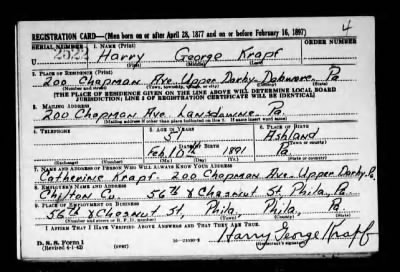 4
REGISTRATION CARD—(Men born on or after April 28, 1877 and on or before February 16, 1897)
SERIAL NUMBER 1. NAME (Print) ORDER NUMBER
U 2323 Harry George Krapf
(First) (Middle) (Last)
2. PLACE OF RESIDENCE (Print)
200 Chapman Ave. Upper Darby Delaware Pa.
(Number and street) (Town, township, village, or city) (County) (State)
[THE PLACE OF RESIDENCE GIVEN ON THE LINE ABOVE WILL DETERMINE LOCAL BOARD
JURISDICTION; LINE 2 OF REGISTRATION CERTIFICATE WILL BE IDENTICAL]
3. MAILING ADDRESS
200 Chapman Ave Lansdowne Pa.
[Mailing address if other than place indicated on line 2. If same insert word same]
4. TELEPHONE 5. AGE IN YEARS 6. PLACE OF BIRTH
51 Ashland
DATE OF BIRTH (Town or county)
Feb 1891 Pa.
(Exchange) (Number) (Mo.) (Day) (Yr.) (State or country)
7. NAME AND ADDRESS OF PERSON WHO WILL ALWAYS KNOW YOUR ADDRESS
Catherine Krapf. 200 Chapman Ave. Upper Darby, Pa.
8. EMPLOYER'S NAME AND ADDRESS
Chilton Co. 56th & Chesnut St, Phila, Pa.
9. PLACE OF EMPLOYMENT OR BUSINESS
56th & Chesnut St, Phila, Phila, Pa.
(Number and street or R. F. D. number) (Town) (County) (State)
I AFFIRM THAT I HAVE VERIFIED ABOVE ANSWERS AND THAT THEY ARE TRUE.
Harry George Krapf
D. S. S. Form 1
(Revised 4-1-42) (over) (Registrant's signature)